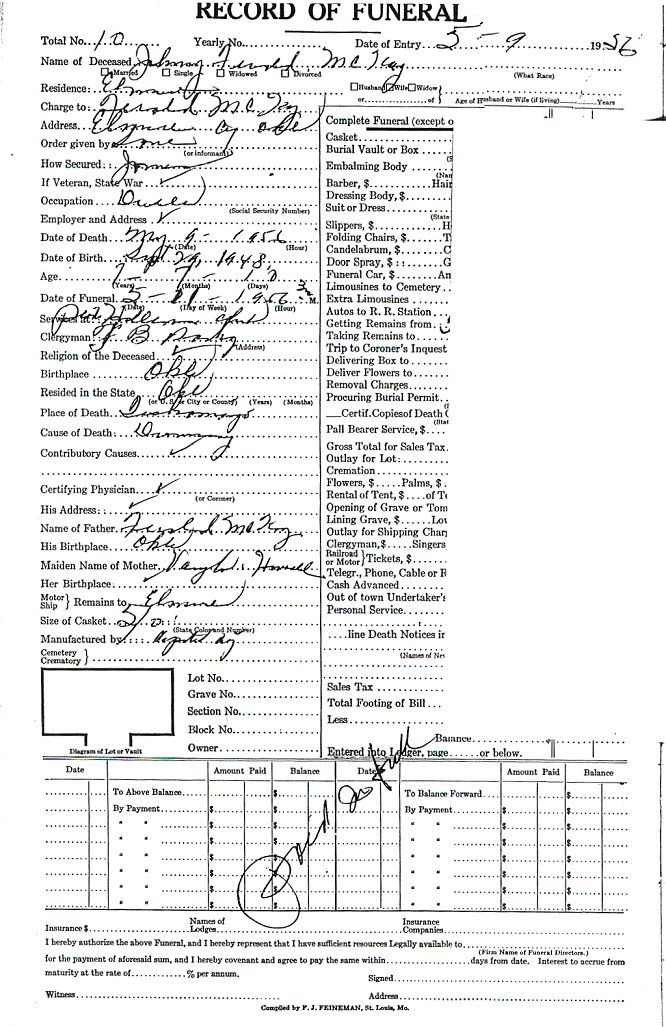 RECORD OF FUNERAL
Total No. 10 Yearly No. Date of Entry 5-9 1956
Name of Deceased Johnny Ferold McKay
Married Single Widowed Divorced (What Race)
Residence: Elmore
Husband Wife Widow
or of Age of Husband or Wife (if living) Years
Charge to Ferold McKay
Address Elmore City Okla
Order given by Same
(or informant)
How Secured:
If Veteran, State War ✓
Occupation
(Social Security Number)
Employer and Address ✓
Date of Death May 9 - 1956
(Date) (Hour)
Date of Birth Sept 29, 1948
Age 7 - 7 - 10
(Years) (Months) (Days)
Date of Funeral 5 - 11 - 1956 3 M.
(Date) (Day of Week) (Hour)
Services at
Clergyman
(Address)
Religion of the Deceased ✓
Birthplace Okla
Resided in the State Okla
(or U. S. or City or County) (Years) (Months)
Place of Death
Cause of Death
Contributory Causes ✓
Certifying Physician ✓
(or Coroner)
His Address: ✓
Name of Father Ferold McKay
His Birthplace Okla
Maiden Name of Mother
Her Birthplace ✓
Motor Ship } Remains to Elmore
Size of Casket
(State Color and Number)
Manufactured by
Cemetery Crematory }
Lot No.
Grave No.
Section No.
Block No.
Owner
Diagram of Lot or Vault
Complete Funeral (except o
Casket
Burial Vault or Box
(S
Embalming Body
(Nan
Barber, $ Hair
Dressing Body, $
Suit or Dress
(State
Slippers, $ H
Folding Chairs, $ T
Candelabrum, $ C
Door Spray, $ G
Funeral Car, $ An
Limousines to Cemetery
Extra Limousines
Autos to R. R. Station
Getting Remains from
Taking Remains to
Trip to Coroner's Inquest
Delivering Box to
Deliver Flowers to
Removal Charges
Procuring Burial Permit
Certif. Copies of Death C
(Stat
Pall Bearer Service, $
Gross Total for Sales Tax
Outlay for Lot:
Cremation
Flowers, $ Palms, $
Rental of Tent, $ of Te
Opening of Grave or Tom
Lining Grave, $ Lov
Outlay for Shipping Char
Clergyman, $ Singers
Railroad or Motor } Tickets, $
Telegr., Phone, Cable or R
Cash Advanced
Out of town Undertaker's
Personal Service
line Death Notices in
(Names of Nev
Sales Tax
Total Footing of Bill
Less
Balance
Entered into Ledger, page or below.
Date Amount Paid Balance Date Amount Paid Balance
To Above Balance $ To Balance Forward $
By Payment $ $ By Payment $ $
" " $ $ " " $ $
" " $ $ " " $ $
" " $ $ " " $ $
" " $ $ " " $ $
" " $ $ " " $ $
" " $ $ " " $ $
Paid in full
Insurance $ Names of Lodges Insurance Companies
I hereby authorize the above Funeral, and I hereby represent that I have sufficient resources Legally available to
(Firm Name of Funeral Directors.)
for the payment of aforesaid sum, and I hereby covenant and agree to pay the same within days from date. Interest to accrue from
maturity at the rate of % per annum.
Signed
Witness Address
Compiled by F. J. FEINEMAN, St. Louis, Mo.